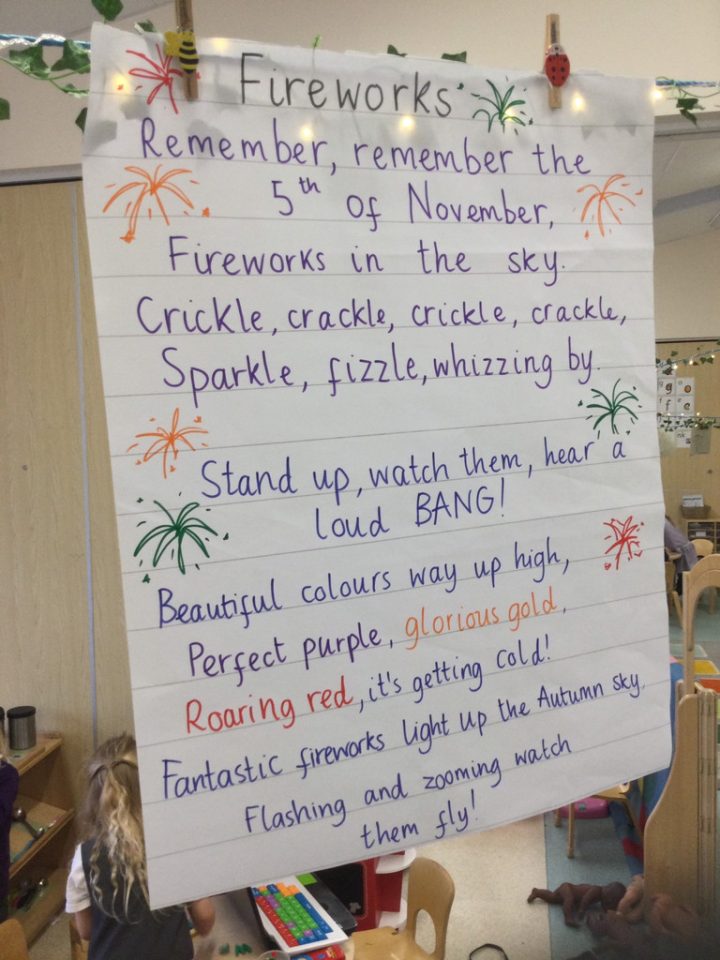 Fireworks
Remember, remember the
5th of November,
Fireworks in the sky.
Crickle, crackle, crickle, crackle,
Sparkle, fizzle, whizzing by.
Stand up, watch them, hear a
loud BANG!
Beautiful colours way up high,
Perfect purple, glorious gold,
Roaring red, it's getting cold!
Fantastic fireworks light up the Autumn sky.
Flashing and zooming watch
them fly!